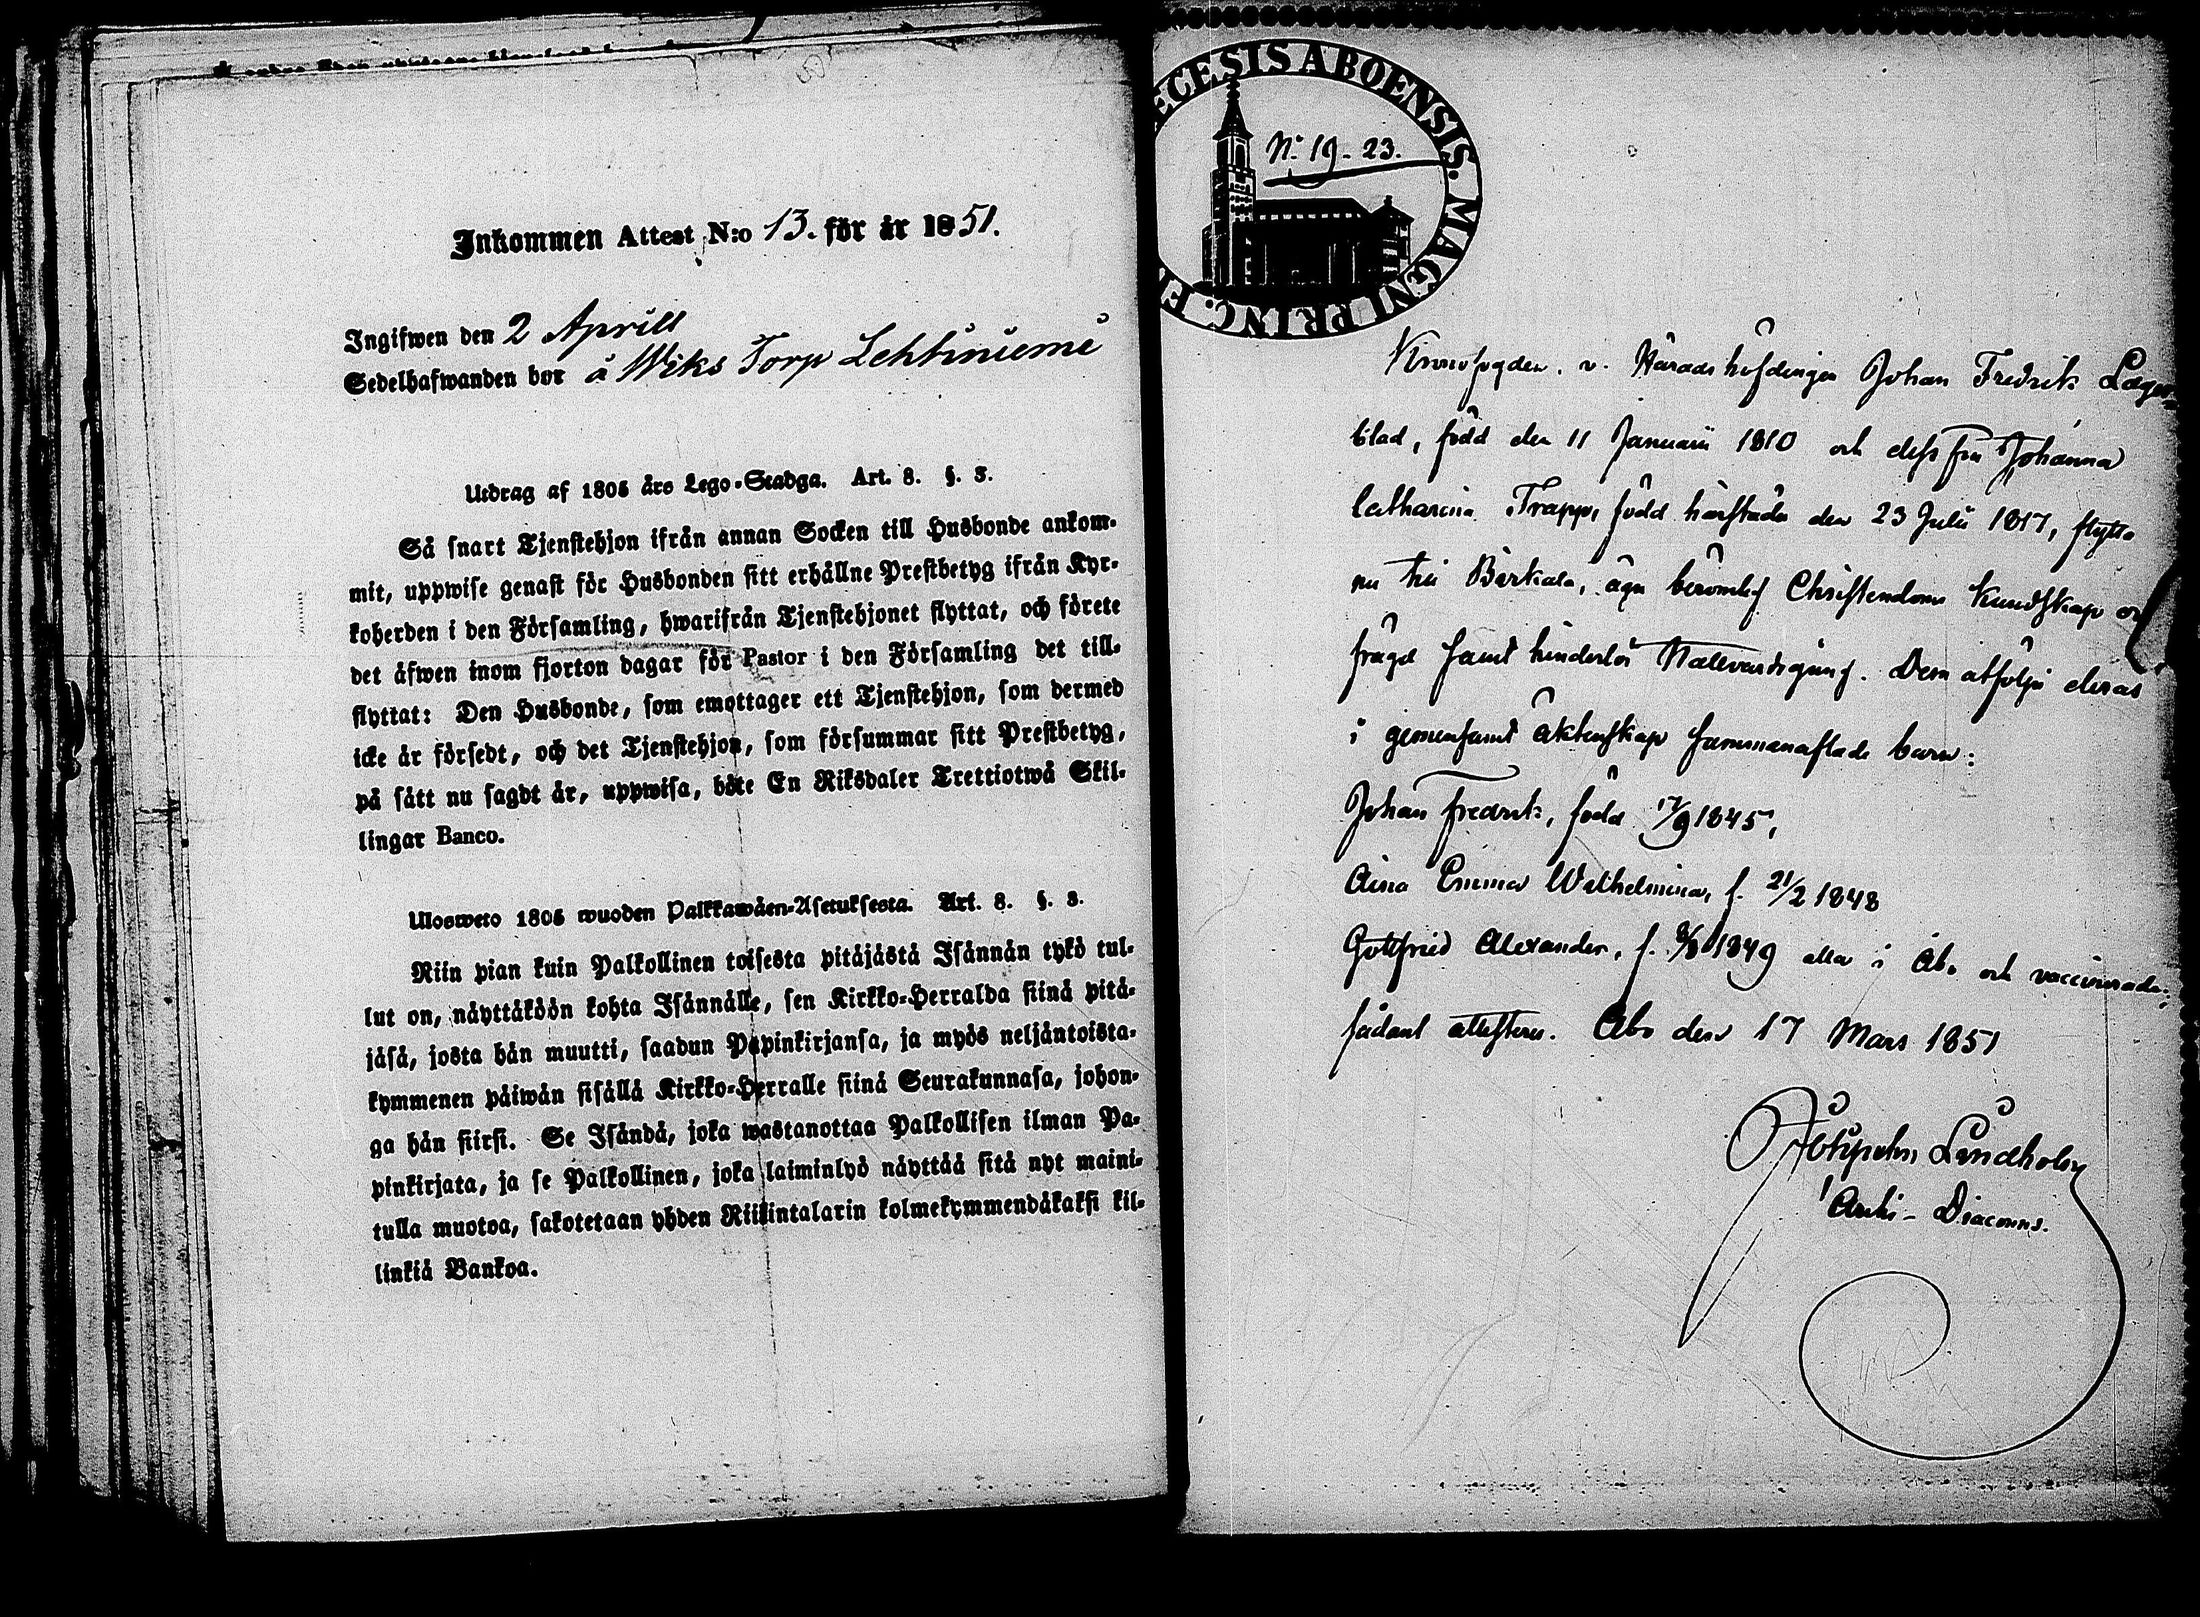 Inkommen Attest N:o 13. för år 1851.
Ingifwen den 2 Aprill
Sedelhafwanden bor å Wiks Torp Lehtiniemi
Utdrag af 1805 års Lego-Stadga. Art. 8. §. 3.
Så snart Tjenstehjon ifrån annan Socken till Husbonde ankom-
mit, uppwise genast för Husbonden sitt erhållne Prestbetyg ifrån Kyr-
koherden i den Församling, hwarifrån Tjenstehjonet flyttat, och förete
det äfwen inom fjorton dagar för Pastor i den Församling det till-
flyttat: Den Husbonde, som emottager ett Tjenstehjon, som dermed
icke är försedt, och det Tjenstehjon, som försummar sitt Prestbetyg,
på sätt nu sagdt är, uppwisa, böte En Riksdaler Trettiotwå Skil-
lingar Banco.
Ulosweto 1805 wuoden Palkkawäen-Asetuksesta. Art. 8. §. 3.
Niin pian kuin Palkollinen toisesta pitäjästä Isännän tykö tul-
lut on, näyttäköön kohta Isännälle, sen Kirkko-Herralda siinä pitä-
jäsä, josta hän muutti, saadun Papinkirjansa, ja myös neljäntoista-
kymmenen päiwän sisällä Kirkko-Herralle siinä Seurakunnasa, johon-
ga hän siirsi. Se Isändä, joka wastanottaa Palkollisen ilman Pa-
pinkirjata, ja se Palkollinen, joka laiminlyö näyttää sitä nyt maini-
tulla muotoa, sakotetaan yhden Riikintalarin kolmekymmendäkaksi kil-
linkiä Bankoa.
ECESIS ABOENSIS. MAGNI PRINC. F
N:o 19-23.
Kronofogden, v. Häradshöfdingen Johan Fredrik Lager-
blad, född den 11 Januarii 1810 och dess fru Johanna
Catharina Trapp, född härstädes den 23 Julii 1817, flytta
nu till Birkala, äga berömlig Christendoms kundskap oc
frägd samt hinderlös Nattvardsgång. Dem åtfölja deras
i gemensamt äktenskap sammanaflade barn:
Johan Fredrik, född 17/9 1845,
Aina Emma Wilhelmina, f. 21/2 1848
Gottfried Alexander, f. 1849 alla i Åbo och vaccinerade;
sådant attesteras. Åbo den 17 Mars 1851
Lindholm
Archi-Diaconus.